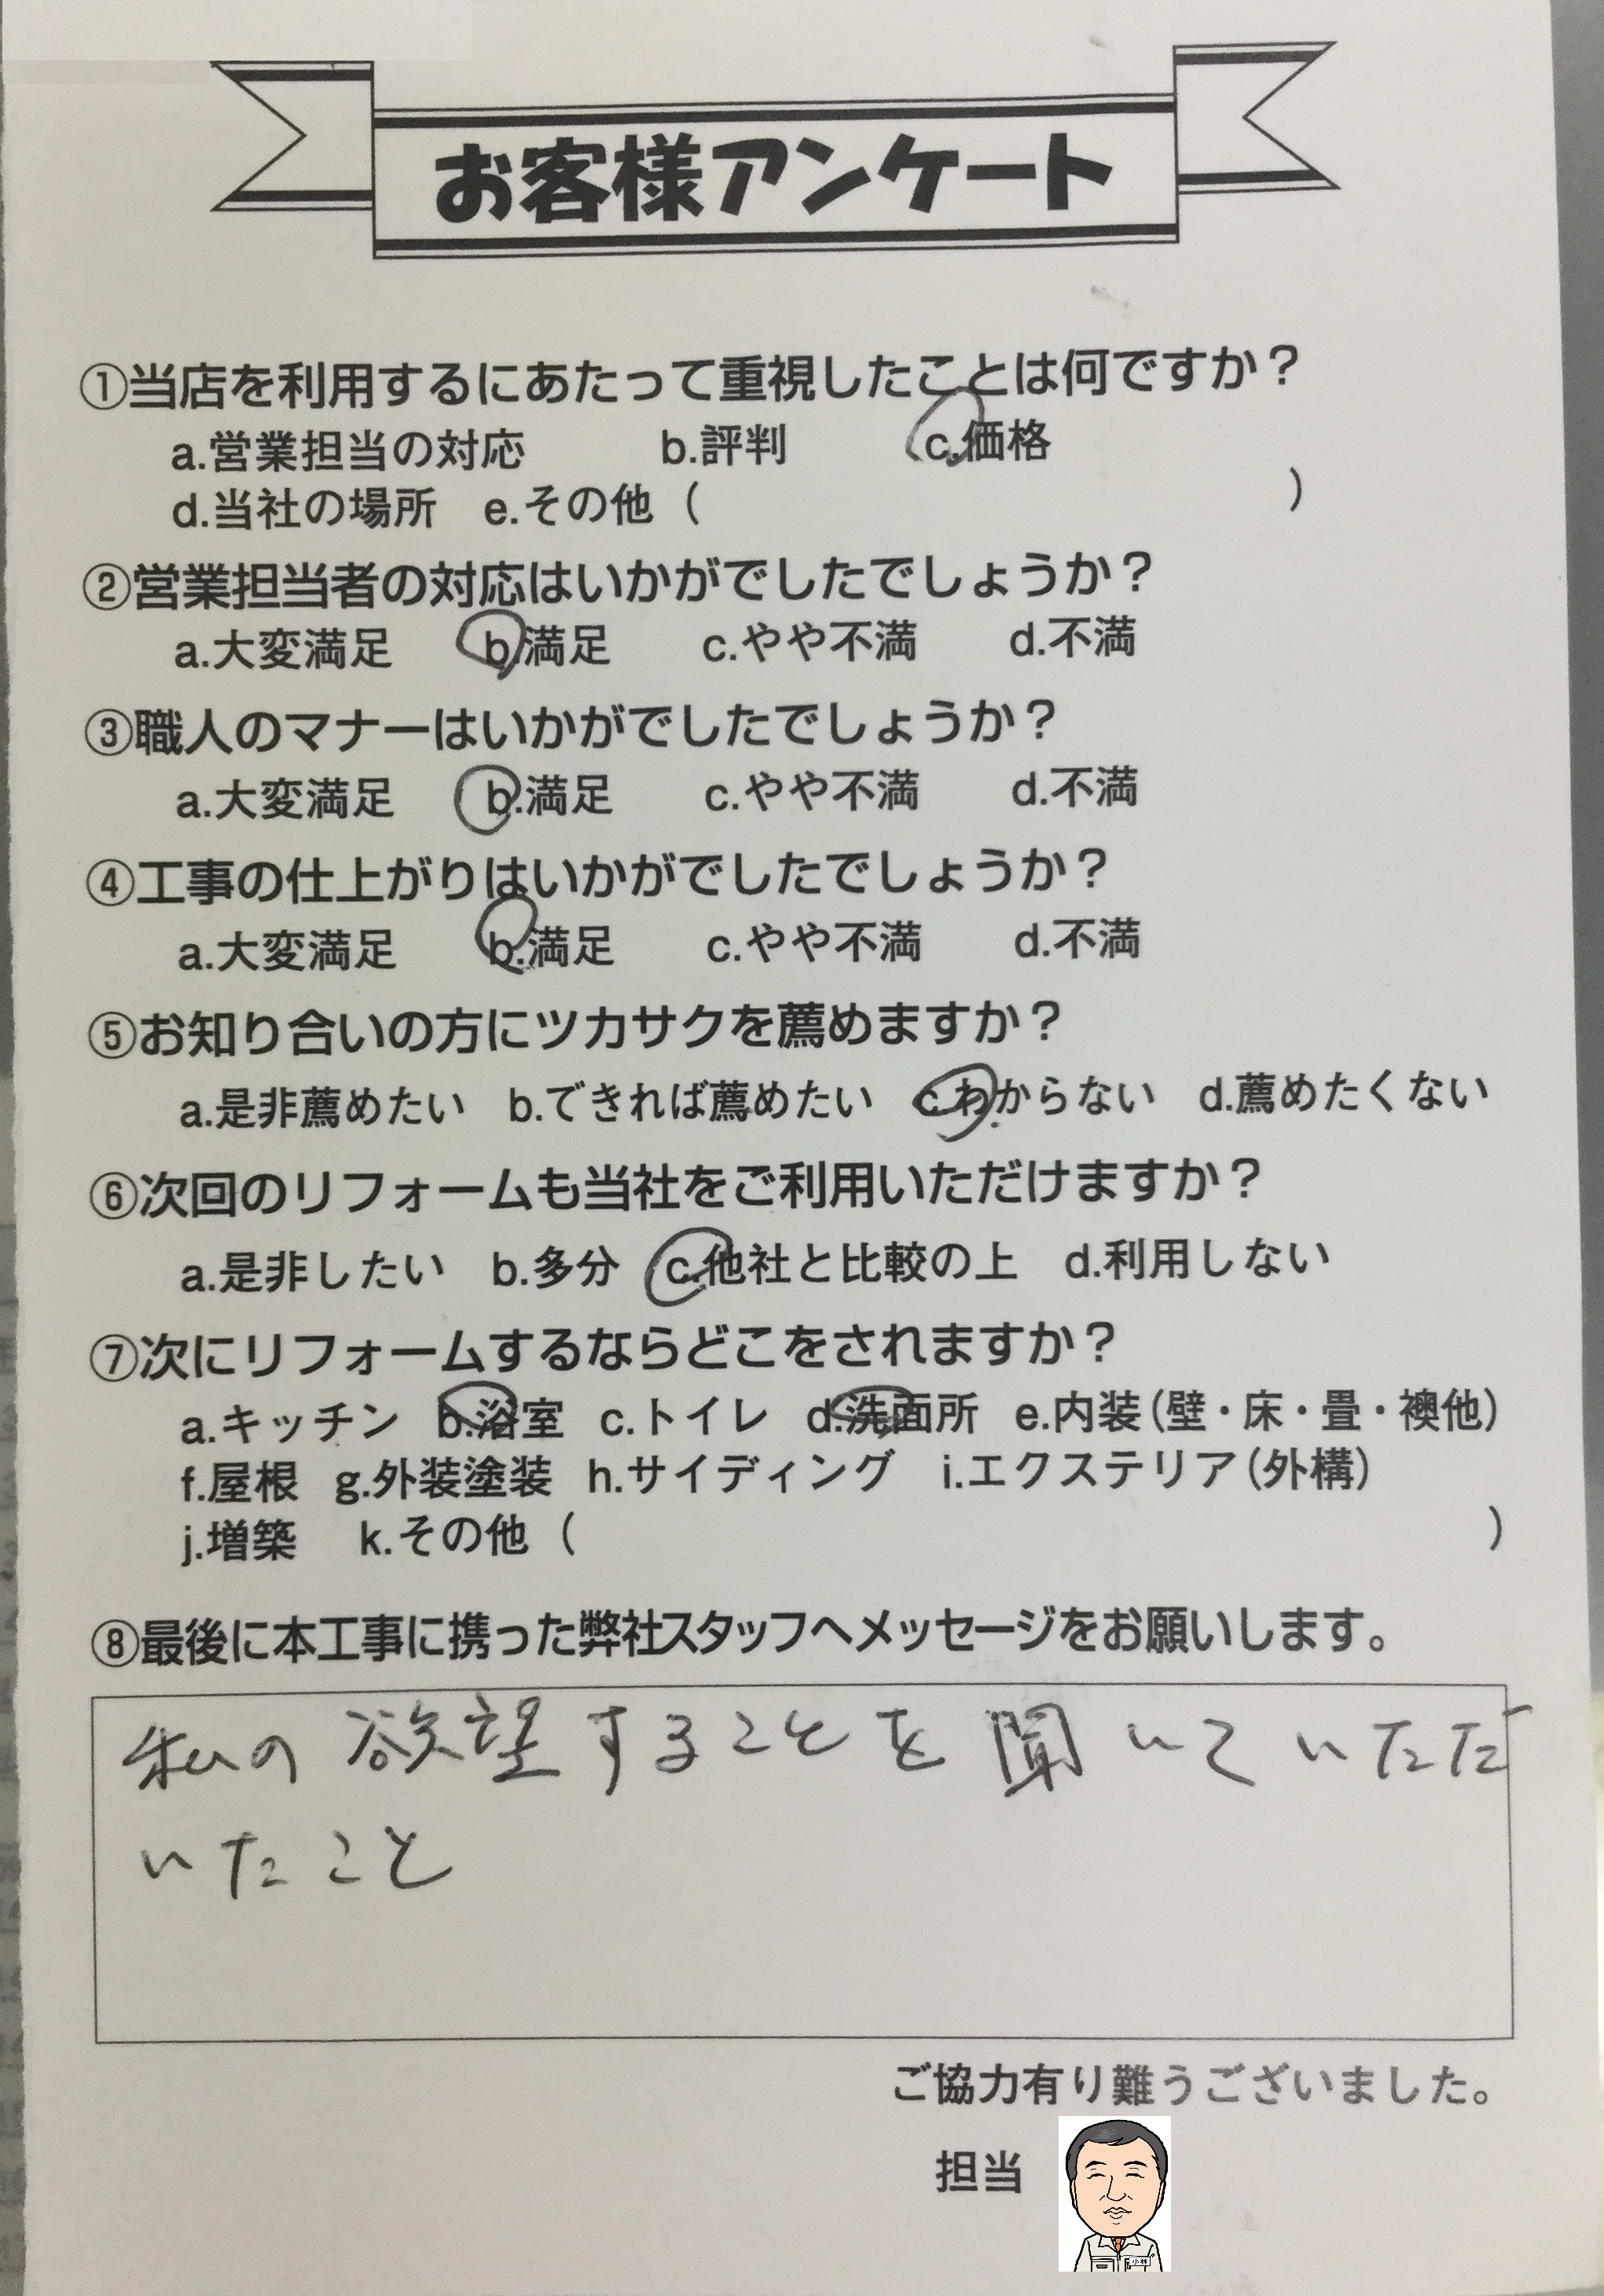 お客様アンケート
①当店を利用するにあたって重視したことは何ですか？
a.営業担当の対応 b.評判 c.価格
d.当社の場所 e.その他（ ）
②営業担当者の対応はいかがでしたでしょうか？
a.大変満足 b.満足 c.やや不満 d.不満
③職人のマナーはいかがでしたでしょうか？
a.大変満足 b.満足 c.やや不満 d.不満
④工事の仕上がりはいかがでしたでしょうか？
a.大変満足 b.満足 c.やや不満 d.不満
⑤お知り合いの方にツカサクを薦めますか？
a.是非薦めたい b.できれば薦めたい c.わからない d.薦めたくない
⑥次回のリフォームも当社をご利用いただけますか？
a.是非したい b.多分 c.他社と比較の上 d.利用しない
⑦次にリフォームするならどこをされますか？
a.キッチン b.浴室 c.トイレ d.洗面所 e.内装（壁・床・畳・襖他）
f.屋根 g.外装塗装 h.サイディング i.エクステリア（外構）
j.増築 k.その他（ ）
⑧最後に本工事に携った弊社スタッフへメッセージをお願いします。
私の欲望することを聞いていただ
いたこと
ご協力有り難うございました。
担当
小林